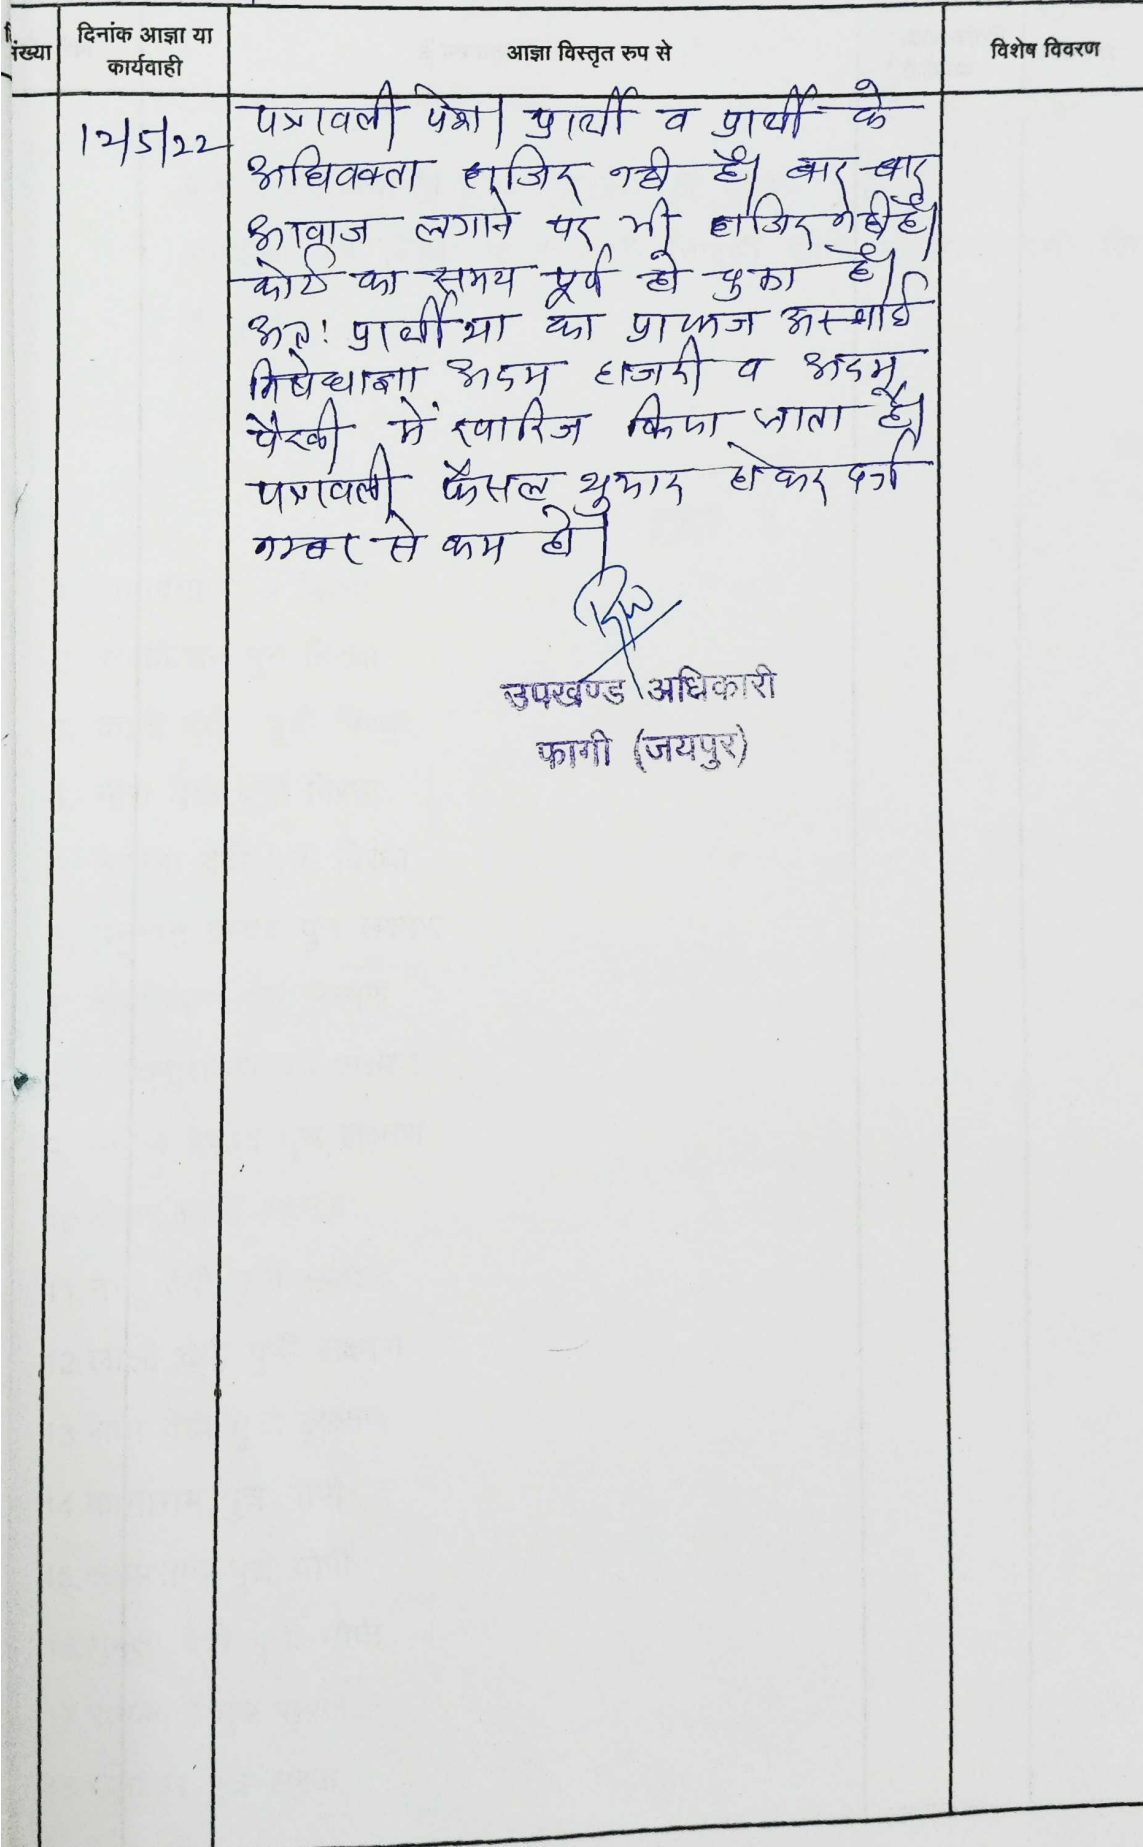 संख्या
दिनांक आज्ञा या
कार्यवाही
आज्ञा विस्तृत रुप से
विशेष विवरण
12/5/22
पत्रावली पेश। प्रार्थी व प्रार्थी के
अधिवक्ता हाजिर नही है। बार-बार
आवाज लगाने पर भी हाजिर नही है।
कोर्ट का समय पूर्ण हो चुका है।
अत: प्रार्थीया का अस्थाई
निषेधाज्ञा अदम हाजरी व अदम
पैरवी में खारिज किया जाता है।
पत्रावली फैसल शुमार होकर दर्ज
नम्बर से कम हो।
उपखण्ड अधिकारी
फागी (जयपुर)